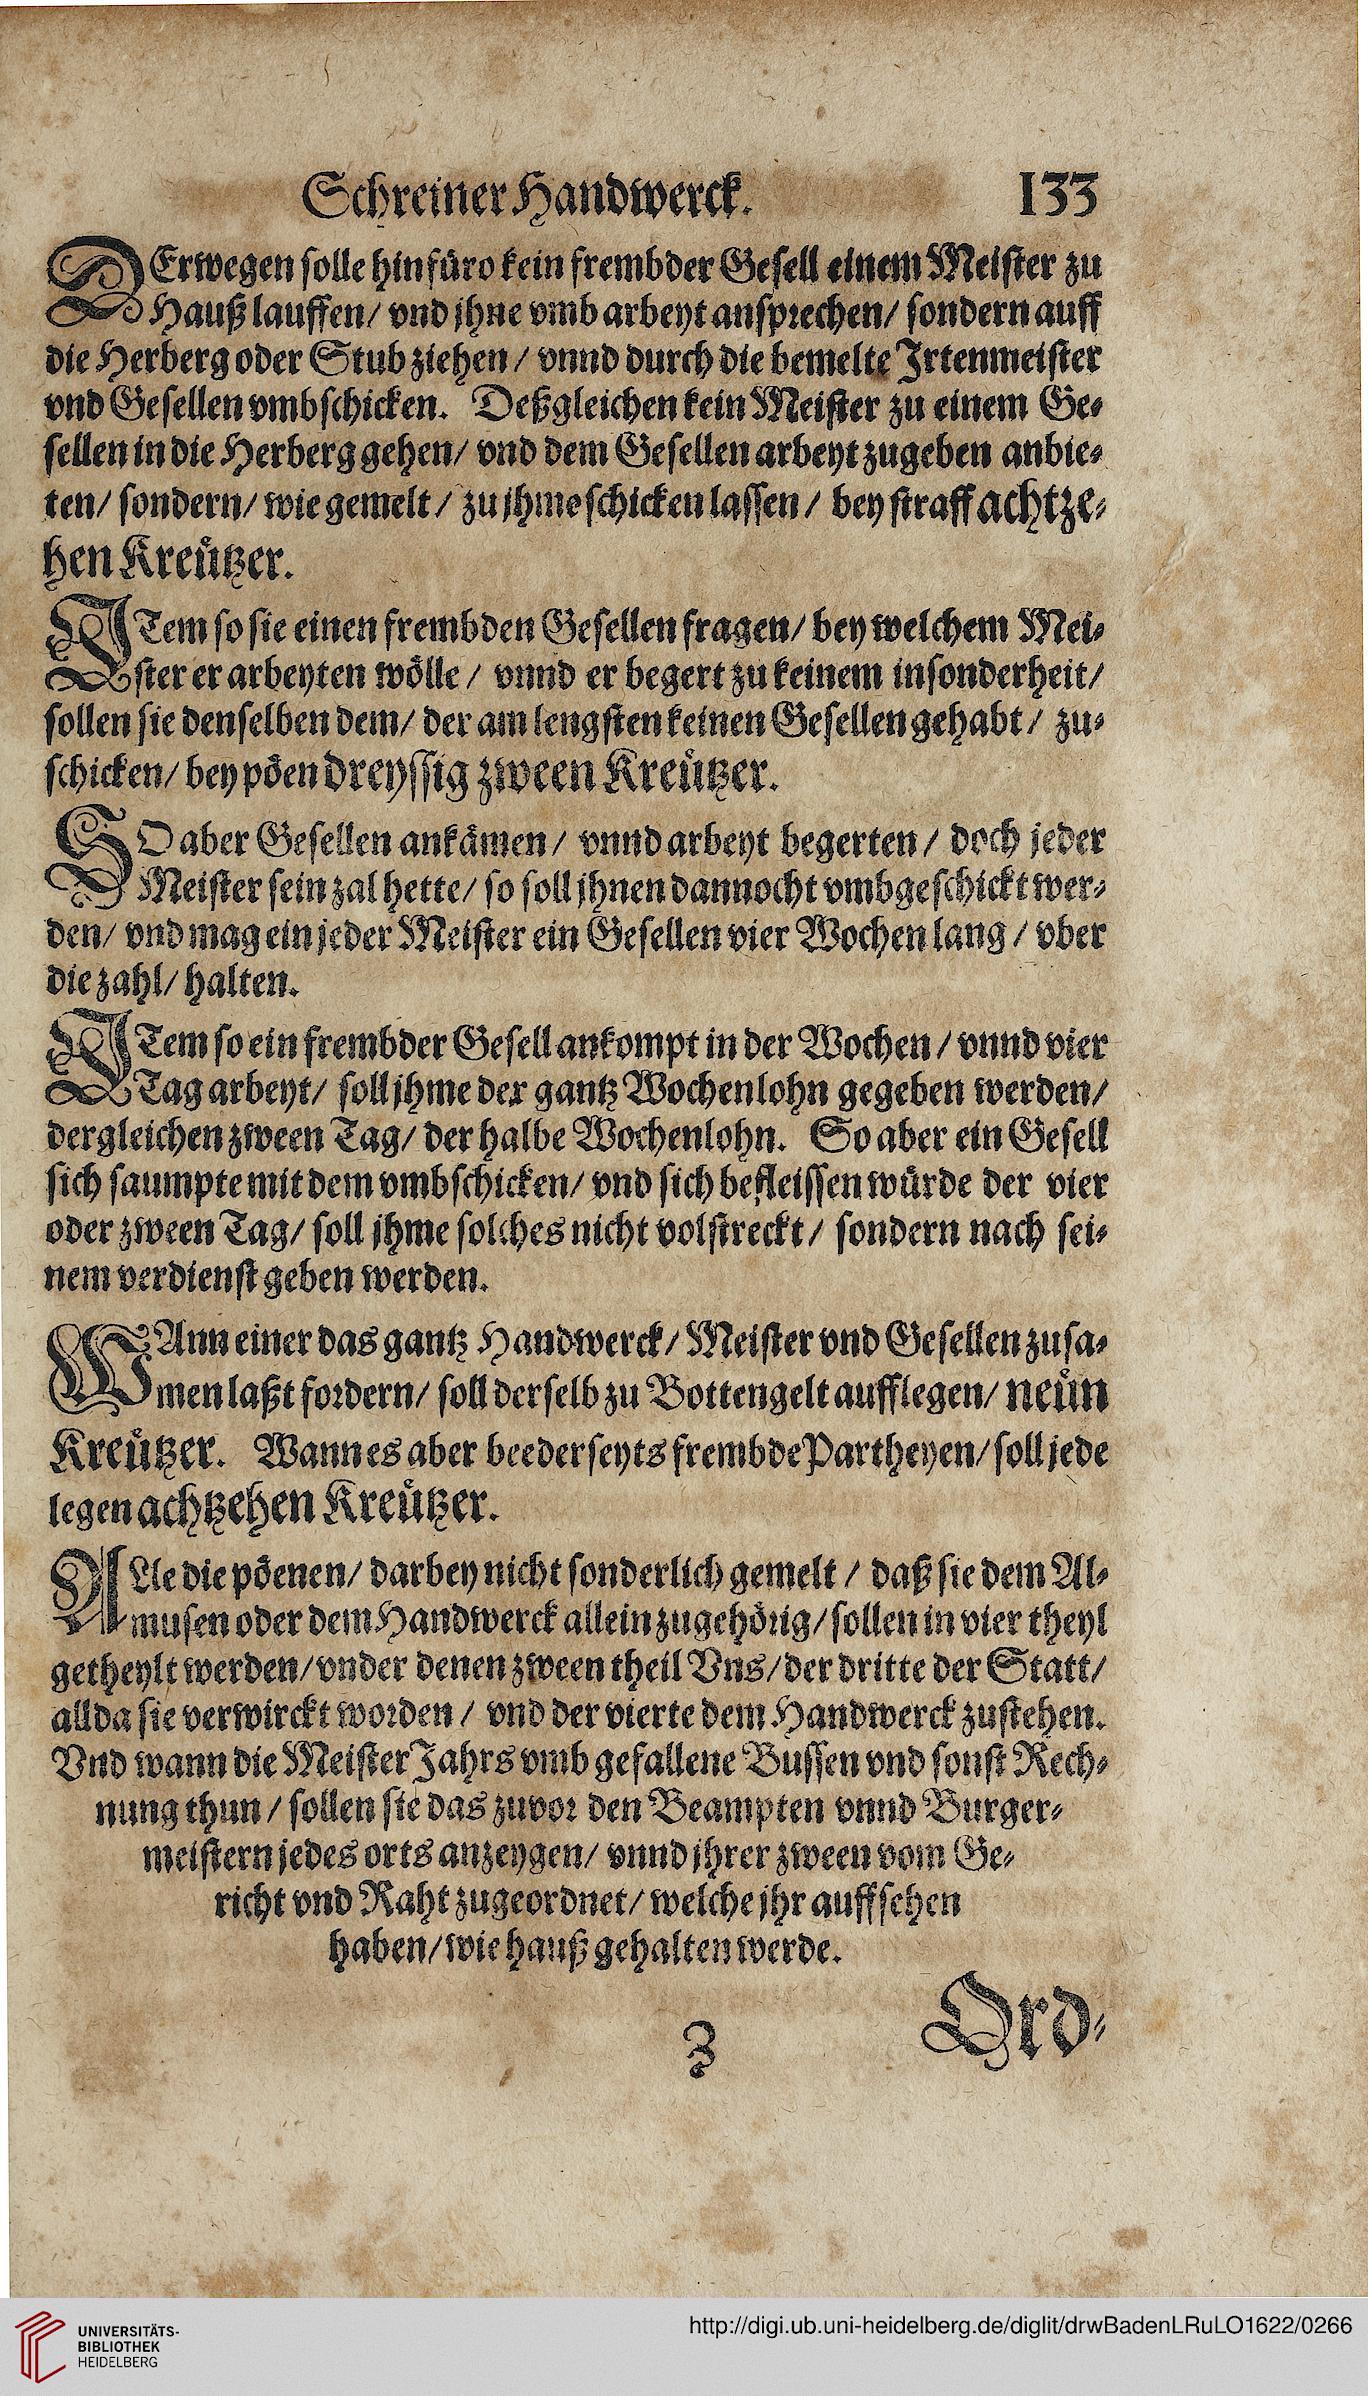 Schreiner Handwerck. 133
DErwegen solle hinfüro kein frembder Gesell einem Meister zu
Hauß lauffen/ vnd jhne vmb arbeyt ansprechen/ sondern auff
die Herberg oder Stub ziehen/ vnnd durch die bemelte Jrtenmeister
vnd Gesellen vmbschicken. Deßgleichen kein Meister zu einem Ge-
sellen in die Herberg gehen/ vnd dem Gesellen arbeyt zugeben anbie-
ten/ sondern/ wie gemelt/ zu jhme schicken lassen/ bey straff achtze-
hen Kreützer.
JTem so sie einen frembden Gesellen fragen/ bey welchem Mei-
ster er arbeyten wölle/ vnnd er begert zu keinem insonderheit/
sollen sie denselben dem/ der am lengsten keinen Gesellen gehabt/ zu-
schicken/ bey pöen dreyssig zween Kreützer.
SO aber Gesellen ankämen/ vnnd arbeyt begerten/ doch jeder
Meister sein zal hette/ so soll jhnen dannocht vmbgeschickt wer-
den/ vnd mag ein jeder Meister ein Gesellen vier Wochen lang/ vber
die zahl/ halten.
JTem so ein frembder Gesell ankompt in der Wochen/ vnnd vier
Tag arbeyt/ soll jhme der gantz Wochenlohn gegeben werden/
dergleichen zween Tag/ der halbe Wochenlohn. So aber ein Gesell
sich saumpte mit dem vmbschicken/ vnd sich befleissen würde der vier
oder zween Tag/ soll jhme solches nicht volstreckt/ sondern nach sei-
nem verdienst geben werden.
WAnn einer das gantz Handwerck/ Meister vnd Gesellen zusa-
men laßt fordern/ soll derselb zu Bottengelt aufflegen/ neün
Kreützer. Wann es aber beederseyts frembde Partheyen/ soll jede
legen achtzehen Kreützer.
ALle die pöenen/ darbey nicht sonderlich gemelt/ daß sie dem Al-
musen oder dem Handwerck allein zugehörig/ sollen in vier theyl
getheylt werden/ vnder denen zween theil Vns/ der dritte der Statt/
allda sie verwirckt worden/ vnd der vierte dem Handwerck zustehen.
Vnd wann die Meister Jahrs vmb gefallene Bussen vnd sonst Rech-
nung thun/ sollen sie das zuvor den Beampten vnnd Burger-
meistern jedes orts anzeygen/ vnnd jhrer zween vom Ge-
richt vnd Raht zugeordnet/ welche jhr auffsehen
haben/ wie hauß gehalten werde.
Z Ord-
UNIVERSITÄTS-
BIBLIOTHEK
HEIDELBERG
http://digi.ub.uni-heidelberg.de/diglit/drwBadenLRuLO1622/0266